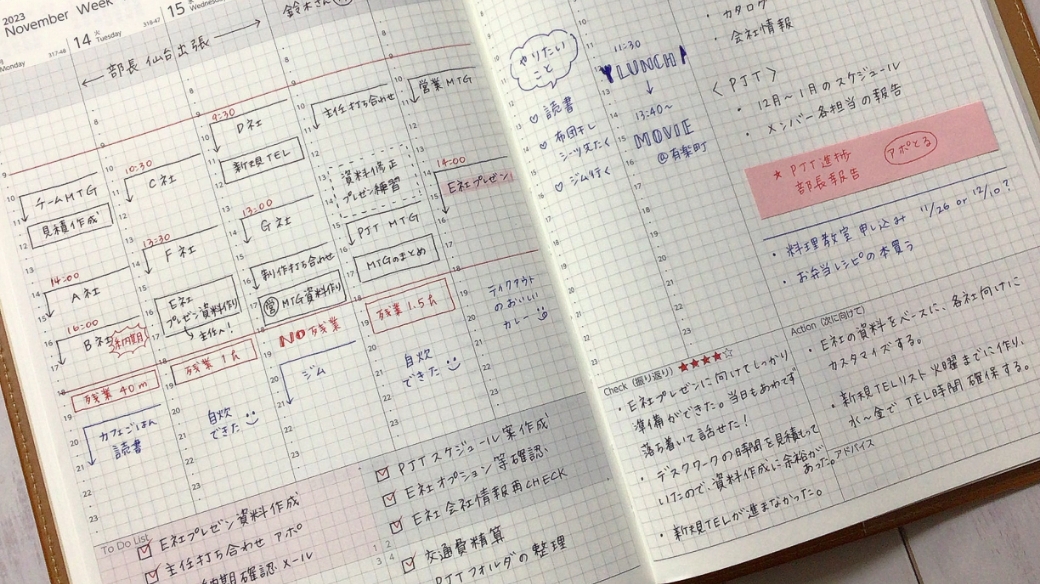 2023
November Week
Monday
317-48
14 火 Tuesday
318-47
15 水
鈴木さん
← 部長 仙台出張 →
チームMTG
見積作成
14:00
A社
16:00
B社
納期
残業 40m
カフェごはん
読書
10:30
C社
13:30
F社
E社
プレゼン資料作り
主任へ!
残業 1h
自炊
できた
9:30
D社
新規TEL
13:00
G社
制作打ち合わせ
営MTG資料作り
NO 残業
ジム
主任打ち合わせ
資料修正
プレゼン練習
PJT MTG
MTGのまとめ
残業 1.5h
自炊
できた
営業MTG
14:00
E社プレゼン!
テイクアウト
のおいしい
カレー
To Do List
E社プレゼン資料作成
主任打ち合わせ アポ
納期確認メール
PJTスケジュール案作成
E社オプション等確認
E社会社情報再CHECK
交通費精算
PJTフォルダの整理
やりたい
こと
♡ 読書
♡ 布団干し
シーツ洗たく
♡ ジム行く
11:30
LUNCH
↓
13:40〜
MOVIE
@有楽町
・カタログ
・会社情報
〈PJT〉
・12月〜1月のスケジュール
・メンバー各担当の報告
★ PJT進捗
部長報告
アポとる
・料理教室 申し込み 11/26 or 12/10?
・お弁当レシピの本買う
Check (振り返り) ★★★★☆
・E社プレゼンに向けてしっかり
準備ができた。当日もあわてず
落ち着いて話せた!
・デスクワークの時間を見積もって
いたので、資料作成に余裕が
あった。
・新規TELが進まなかった。
Action (次に向けて)
・E社の資料をベースに、各社向けに
カスタマイズする。
・新規TELリスト火曜までに作り、
水〜金で TEL時間 確保する。
アドバイス